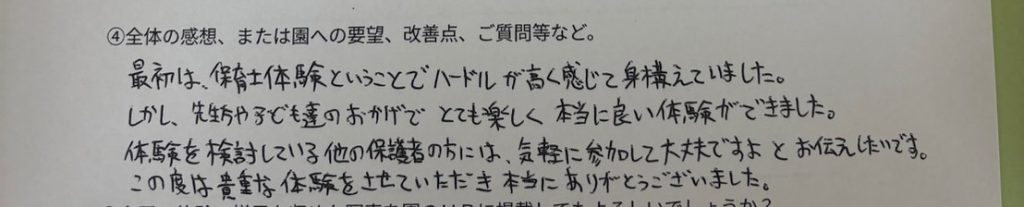 ④全体の感想、または園への要望、改善点、ご質問等など。
最初は、保育士体験ということでハードルが高く感じて身構えていました。
しかし、先生方や子ども達のおかげでとても楽しく本当に良い体験ができました。
体験を検討している他の保護者の方には、気軽に参加して大丈夫ですよとお伝えしたいです。
この度は貴重な体験をさせていただき本当にありがとうございました。